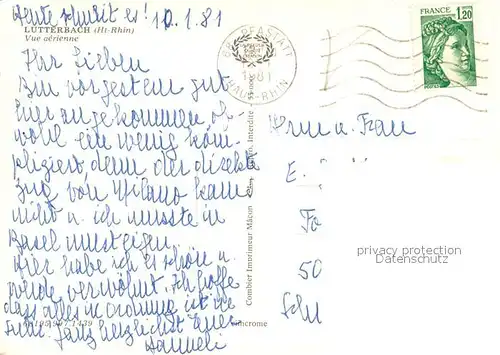 Heute schneit es! 10.1.81
LUTTERBACH (Ht-Rhin)
Vue aérienne
Ihr Lieben
Bin vorgestern gut
hier angekommen ob-
wohl ein wenig kom-
pliziert, denn der direkte
Zug von Milano kam
nicht u. ich musste in
Basel umsteigen.
Hier habe ich es schön u.
werde verwöhnt. Ich hoffe
dass alles in Ordnung ist
Ganz herzlichst Euer
Hanneli
Combier Imprimeur Mâcon
Interdite
1981
HAUT-RHIN
FRANCE
1,20
POSTES
Herrn u. Frau
E.
Fo
50
Schw
privacy protection
Datenschutz